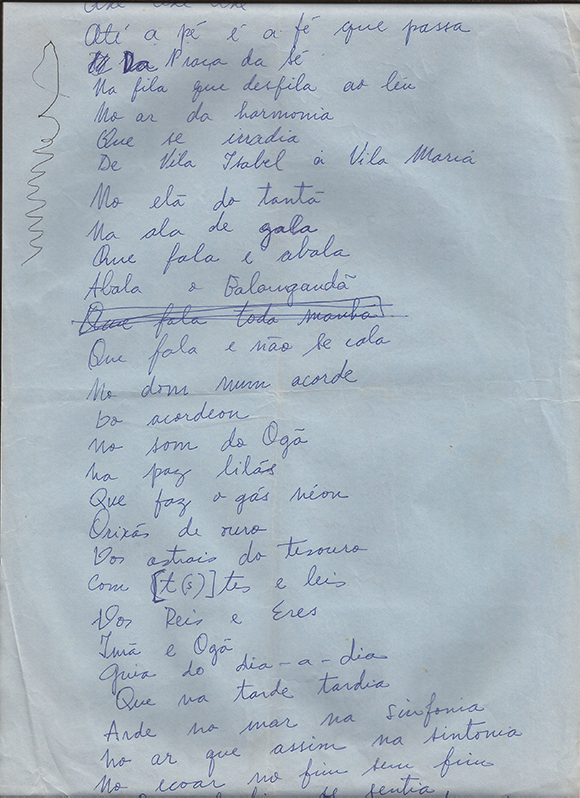 Até a pé é a fé que passa
Da Praça da Sé
Na fila que desfila ao léu
No ar da harmonia
Que se irradia
De Vila Isabel à Vila Maria
No elã do tantã
Na ala de gala
Que fala e abala
Abala o Balangandã
Que fala toda manhã
Que fala e não se cala
No dom num acorde
Do acordeon
No som do Ogã
na paz lilás
Que faz o gás néon
Orixás de ouro
Dos astrais do tesouro
Com [t(s)]tes e leis
Dos Reis e Eres
Imã e Ogã
Guia do dia-a-dia
Que na tarde tardia
Arde no mar na sinfonia
No ar que assim na sintonia
No ecoar no fim sem fim
se sentia